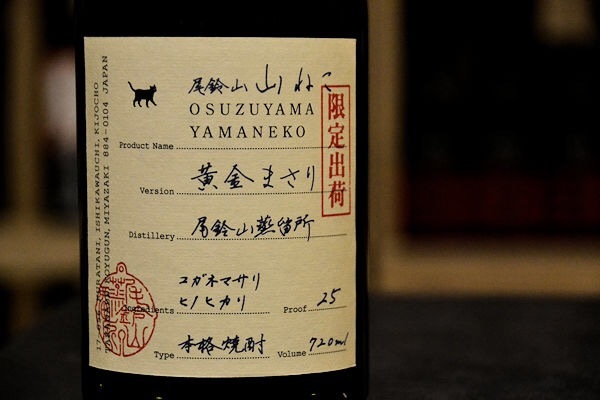 尾鈴山 山ねこ
OSUZUYAMA
YAMANEKO
Product Name
限定出荷
黄金まさり
Version
尾鈴山蒸留所
Distillery
コガネマサリ
ヒノヒカリ
Ingredients
Proof 25
本格焼酎
Type
Volume 720ml
ISHIKAWAUCHI, KIJOCHO
KOYUGUN, MIYAZAKI 884-0104 JAPAN